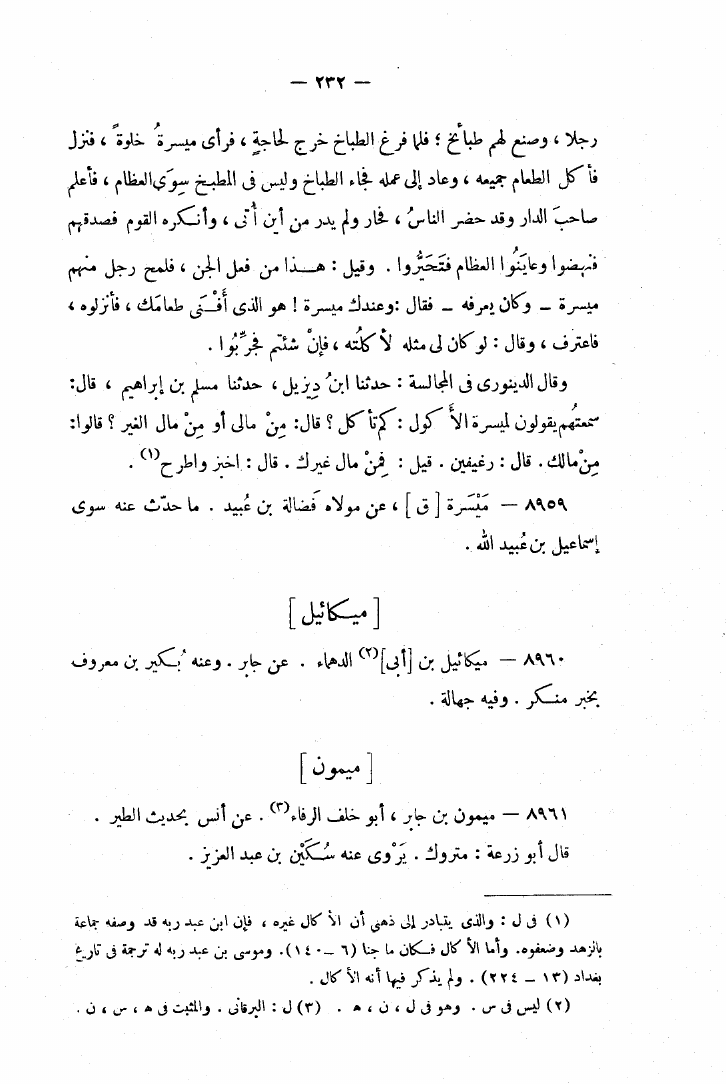 — ٢٣٢ —
رجلا ، وصنع لهم طبائخ ؛ فلما فرغ الطباخ خرج لحاجةٍ ، فرأى ميسرةُ خلوةً ، فنزل
فأ كل الطعام جميعه ، وعاد إلى عمله فجاء الطباخ وليس فى المطبخ سِوَى العظام ، فأعلم
صاحبَ الدار وقد حضر الناسُ ، فحار ولم يدر من أين أُتى ، وأنكره القوم فصدقهم
فنهضوا وعاينُوا العظام فتَحَيَّرُوا . وقيل : هذا من فعل الجن ، فلمح رجل منهم
ميسرة — وكان يعرفه — فقال : وعندك ميسرة ! هو الذى أَفْنَى طعامَك ، فأنزلوه ،
فاعترف ، وقال : لو كان لى مثله لأ كلْتُه ، فإنْ شئتم فجرِّبُوا .
وقال الدينورى فى المجالسة : حدثنا ابنُ دِيزيل ، حدثنا مسلم بن إبراهيم ، قال:
سمعتهُم يقولون لميسرة الأَ كول : كم تأ كل ؟ قال: مِنْ مالى أو مِنْ مال الغير ؟ قالوا:
مِنْ مالك . قال : رغيفين . قيل : فمِنْ مال غيرك . قال : اخبز واطرح (١) .
٨٩٥٩ — مَيْسَرة [ ق ] ، عن مولاه فَضالة بن عُبيد . ما حدّث عنه سوى
إسماعيل بن عُبيد الله .
[ ميكائيل ]
٨٩٦٠ — ميكائيل بن [أبى](٢) الدهماء . عن جابر . وعنه بُكير بن معروف
بخبر منكر . وفيه جهالة .
[ ميمون ]
٨٩٦١ — ميمون بن جابر ، أبو خلف الرفاء(٣) . عن أنس بحديث الطير .
قال أبو زرعة : متروك . يَرْوى عنه سُكَيْن بن عبد العزيز .
(١) فى ل : والذى يتبادر إلى ذهنى أن الأ كال غيره ، فإن ابن عبد ربه قد وصفه جماعة
بالزهد وضعفوه. وأما الأ كال فكان ما جنا (٦ — ١٤٠). وموسى بن عبد ربه له ترجمة فى تاريخ
بغداد (١٣ — ٢٢٤) . ولم يذكر فيها أنه الأ كال .
(٢) ليس فى س . وهو فى ل ، ن ، ه . (٣) ل : البرقانى . والمثبت فى ه ، س ، ن .